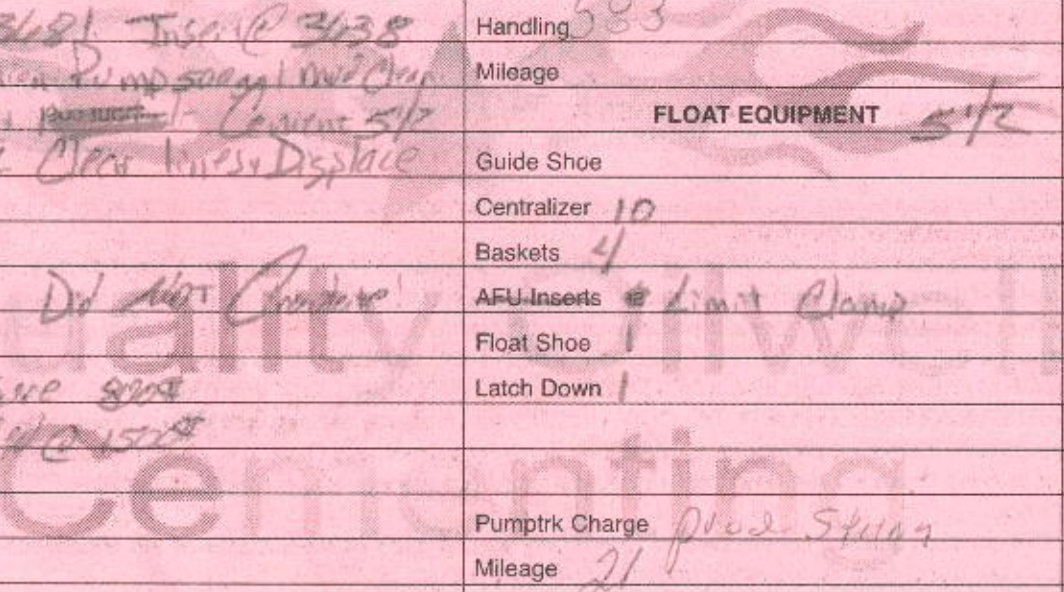 3681 Insert @ 3638
Pump 500gal Mud Clear
Cement 5 1/2
Clear lines & Displace
Did Not Circulate!
800#
@ 1500#
Handling 583
Mileage
FLOAT EQUIPMENT 5 1/2
Guide Shoe
Centralizer 10
Baskets 4
AFU Inserts Limit Clamp
Float Shoe 1
Latch Down 1
Pumptrk Charge prod String
Mileage 21
Quality Oilwell
Cementing